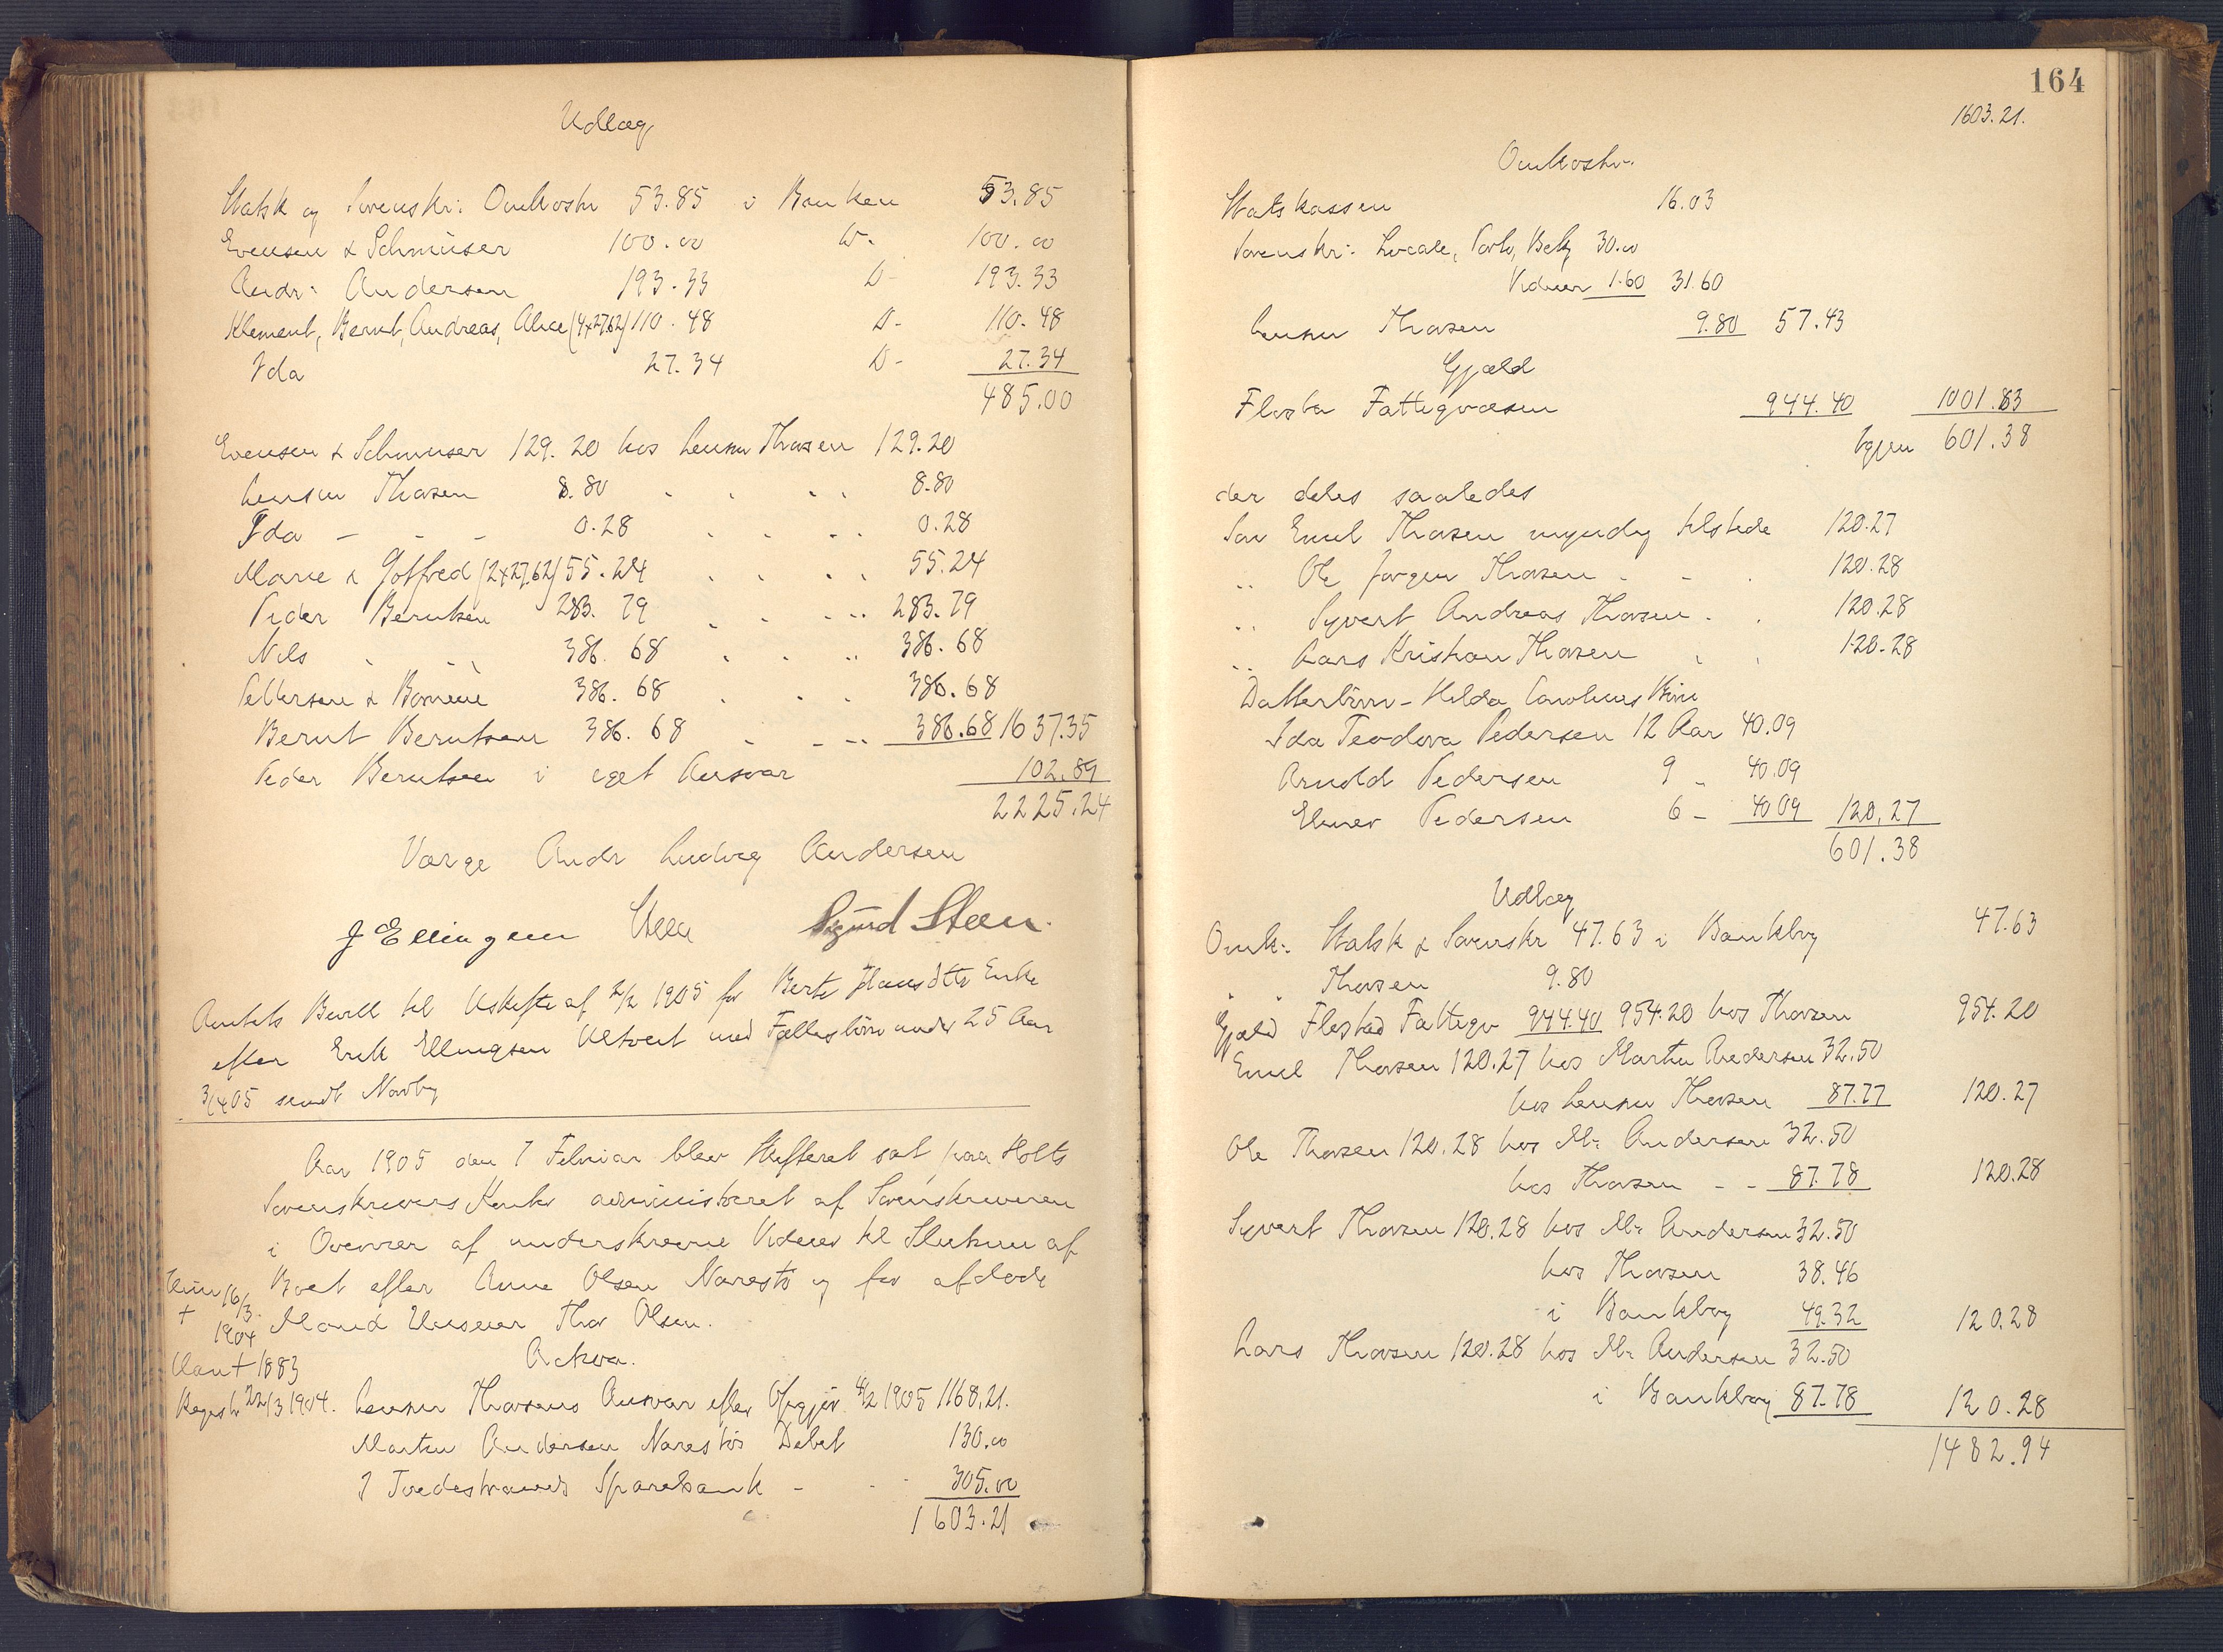 Udlæg
Statsk og Sorenskr: Omkostn 53.85 i Banken 53.85
Evensen & Schmüser 100.00 D- 100.00
Andr: Andersen 193.33 D- 193.33
Klement, Bernt, Andreas, Alice (4x27.62) 110.48 D- 110.48
Ida 27.34 D- 27.34
485.00
Evensen & Schmuser 129.20 hos Thorsen 129.20
Thorsen 8.80 8.80
Ida - - - 0.28 0.28
Marie & Gotfred (2x27.62) 55.24 55.24
Peder Berntsen 283.79 283.79
Nils 386.68 386.68
Pettersen & 386.68 386.68
Bernt Berntsen 386.68 386.68 1637.35
Peder Berntsen i eget Ansvar 102.89
2225.24
Værge Andr Ludvig Andersen
J Ellingsen Sigurd Steen.
Amtets Bevill til Uskifte af 2/2 1905 for Berte Hansdtr Enke
efter Erik Ellingsen med Fællesbörn under 25 Aar
3/4 05 sendt
Aar 1905 den 7 Februar blev Skifteret sat paa Holts
Sorenskrivers Kontor administreret af Sorenskriveren
i Overvær af underskrevne Vidner til Slutning af
16/3 Boet efter Anne Olsen Narestö og før afdöde
† 1904 Mand Thor Olsen.
Man † 1883 Activa.
Registr 22/3 1904. Thorsens Ansvar efter Opgjör 4/2 1905 1168.21.
Martin Andersen Narestös Debet 130.00
I Tvedestrands Sparebank - 305.00
1603.21
164
1603.21.
Omkostn.
Statskassen 16.03
Sorenskr: Locale, Porto, Bek 30.00
Vidner 1.60 31.60
Thorsen 9.80 57.43
Gjæld
Flosta Fattigvæsen 944.40 1001.83
igjen 601.38
der deles saaledes
Sön Emil Thorsen myndig tilstede 120.27
" Ole Jörgen Thorsen - - . 120.28
" Syvert Andreas Thorsen . . 120.28
" Lars Kristian Thorsen 120.28
Datterbörn - Hilda Börn
Ida Teodora Pedersen 12 Aar 40.09
Arnold Pedersen 9 - 40.09
Elmer Pedersen 6 - 40.09 120.27
601.38
Udlæg
Omk: Statsk & Sorenskr 47.63 i Bankbog 47.63
" " Thorsen 9.80
Gjæld Flostad Fattigv 944.40 954.20 hos Thorsen 954.20
Emil Thorsen 120.27 hos Martin Andersen 32.50
hos Thorsen 87.77 120.27
Ole Thorsen 120.28 hos M: Andersen 32.50
hos Thorsen - - 87.78 120.28
Syvert Thorsen 120.28 hos M: Andersen 32.50
hos Thorsen 38.46
i Bankbog 49.32 120.28
Lars Thorsen 120.28 hos M: Andersen 32.50
i Bankbog 87.78 120.28
1482.94